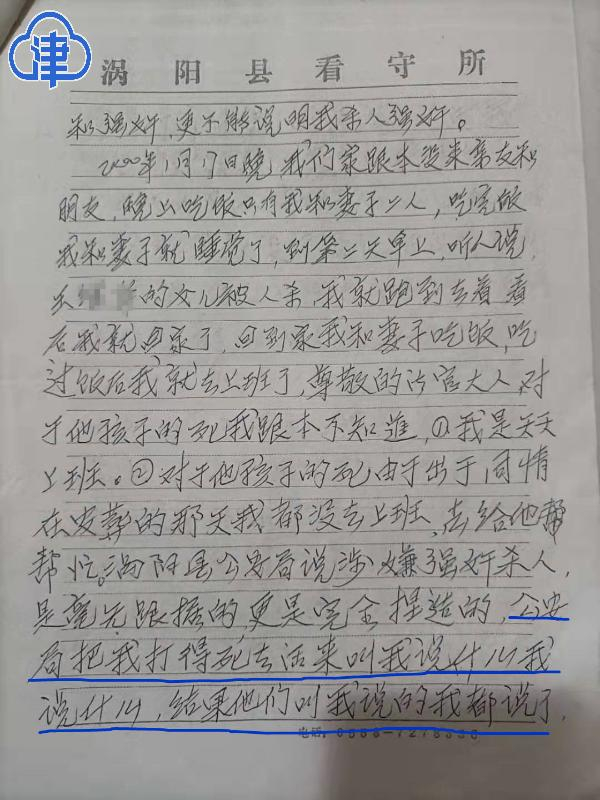 津
涡阳县看守所
和强奸,更不能说明我杀人强奸。
2000年1月17日晚,我们家跟本没来亲友和
朋友,晚上吃饭只有我和妻子二人,吃完饭
我和妻子就睡觉了,到第二天早上,听人说,
的女儿被人杀,我就跑到去看,看
后我就回家了,回到家我和妻子吃饭,吃
过饭后我就去上班了,尊敬的法官大人,对
于他孩子的死我跟本不知道,①我是天天
上班。②对于他孩子的死,由于出于,同情
在发葬的那天我都没去上班,去给他帮
帮忙。涡阳县公安局说涉嫌强奸杀人,
是毫无跟据的,更是完全捏造的,公安
局把我打得死去活来叫我说什么我
说什么,结果他们叫我说的我都说了,
电话:0558-7278336